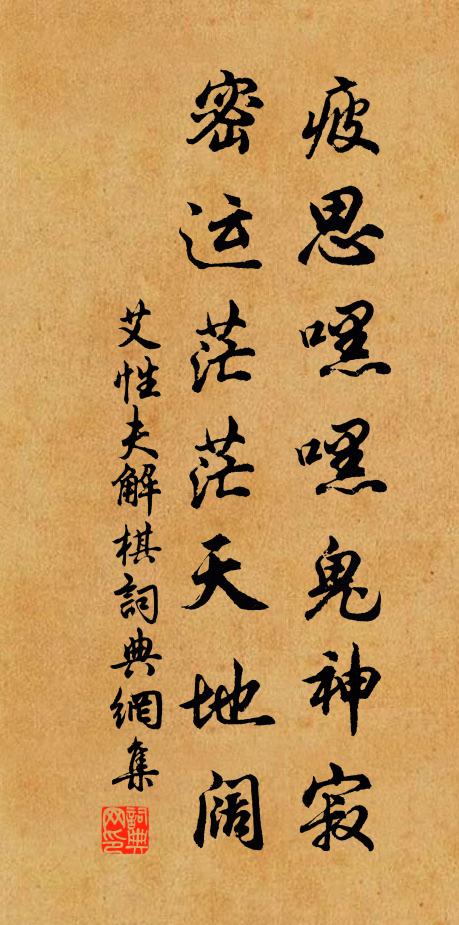 疲思嘿嘿鬼神寂
密运茫茫天地阔
艾性夫解棋詞典網集
詞典网印